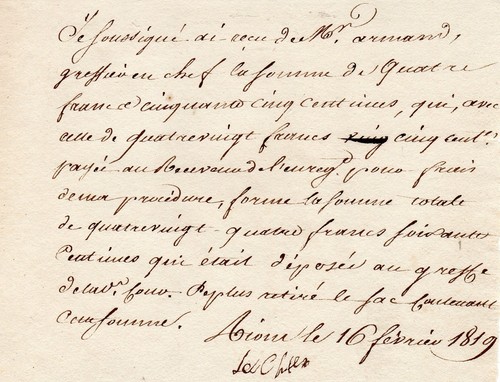 Je soussigné ai reçu de Mr. armand,
greffier en chef la somme de quatre
francs cinquante cinq centimes, qui, avec
celle de quatrevingt francs cinq cent.
payée au Receveur de l'enregt. pour frais
de ma procédure, forme la somme totale
de quatrevingt-quatre francs soixante
Centimes qui était déposée au greffe
de la d. Cour. De plus retiré le sac Contenant
Riom le 16 février 1819